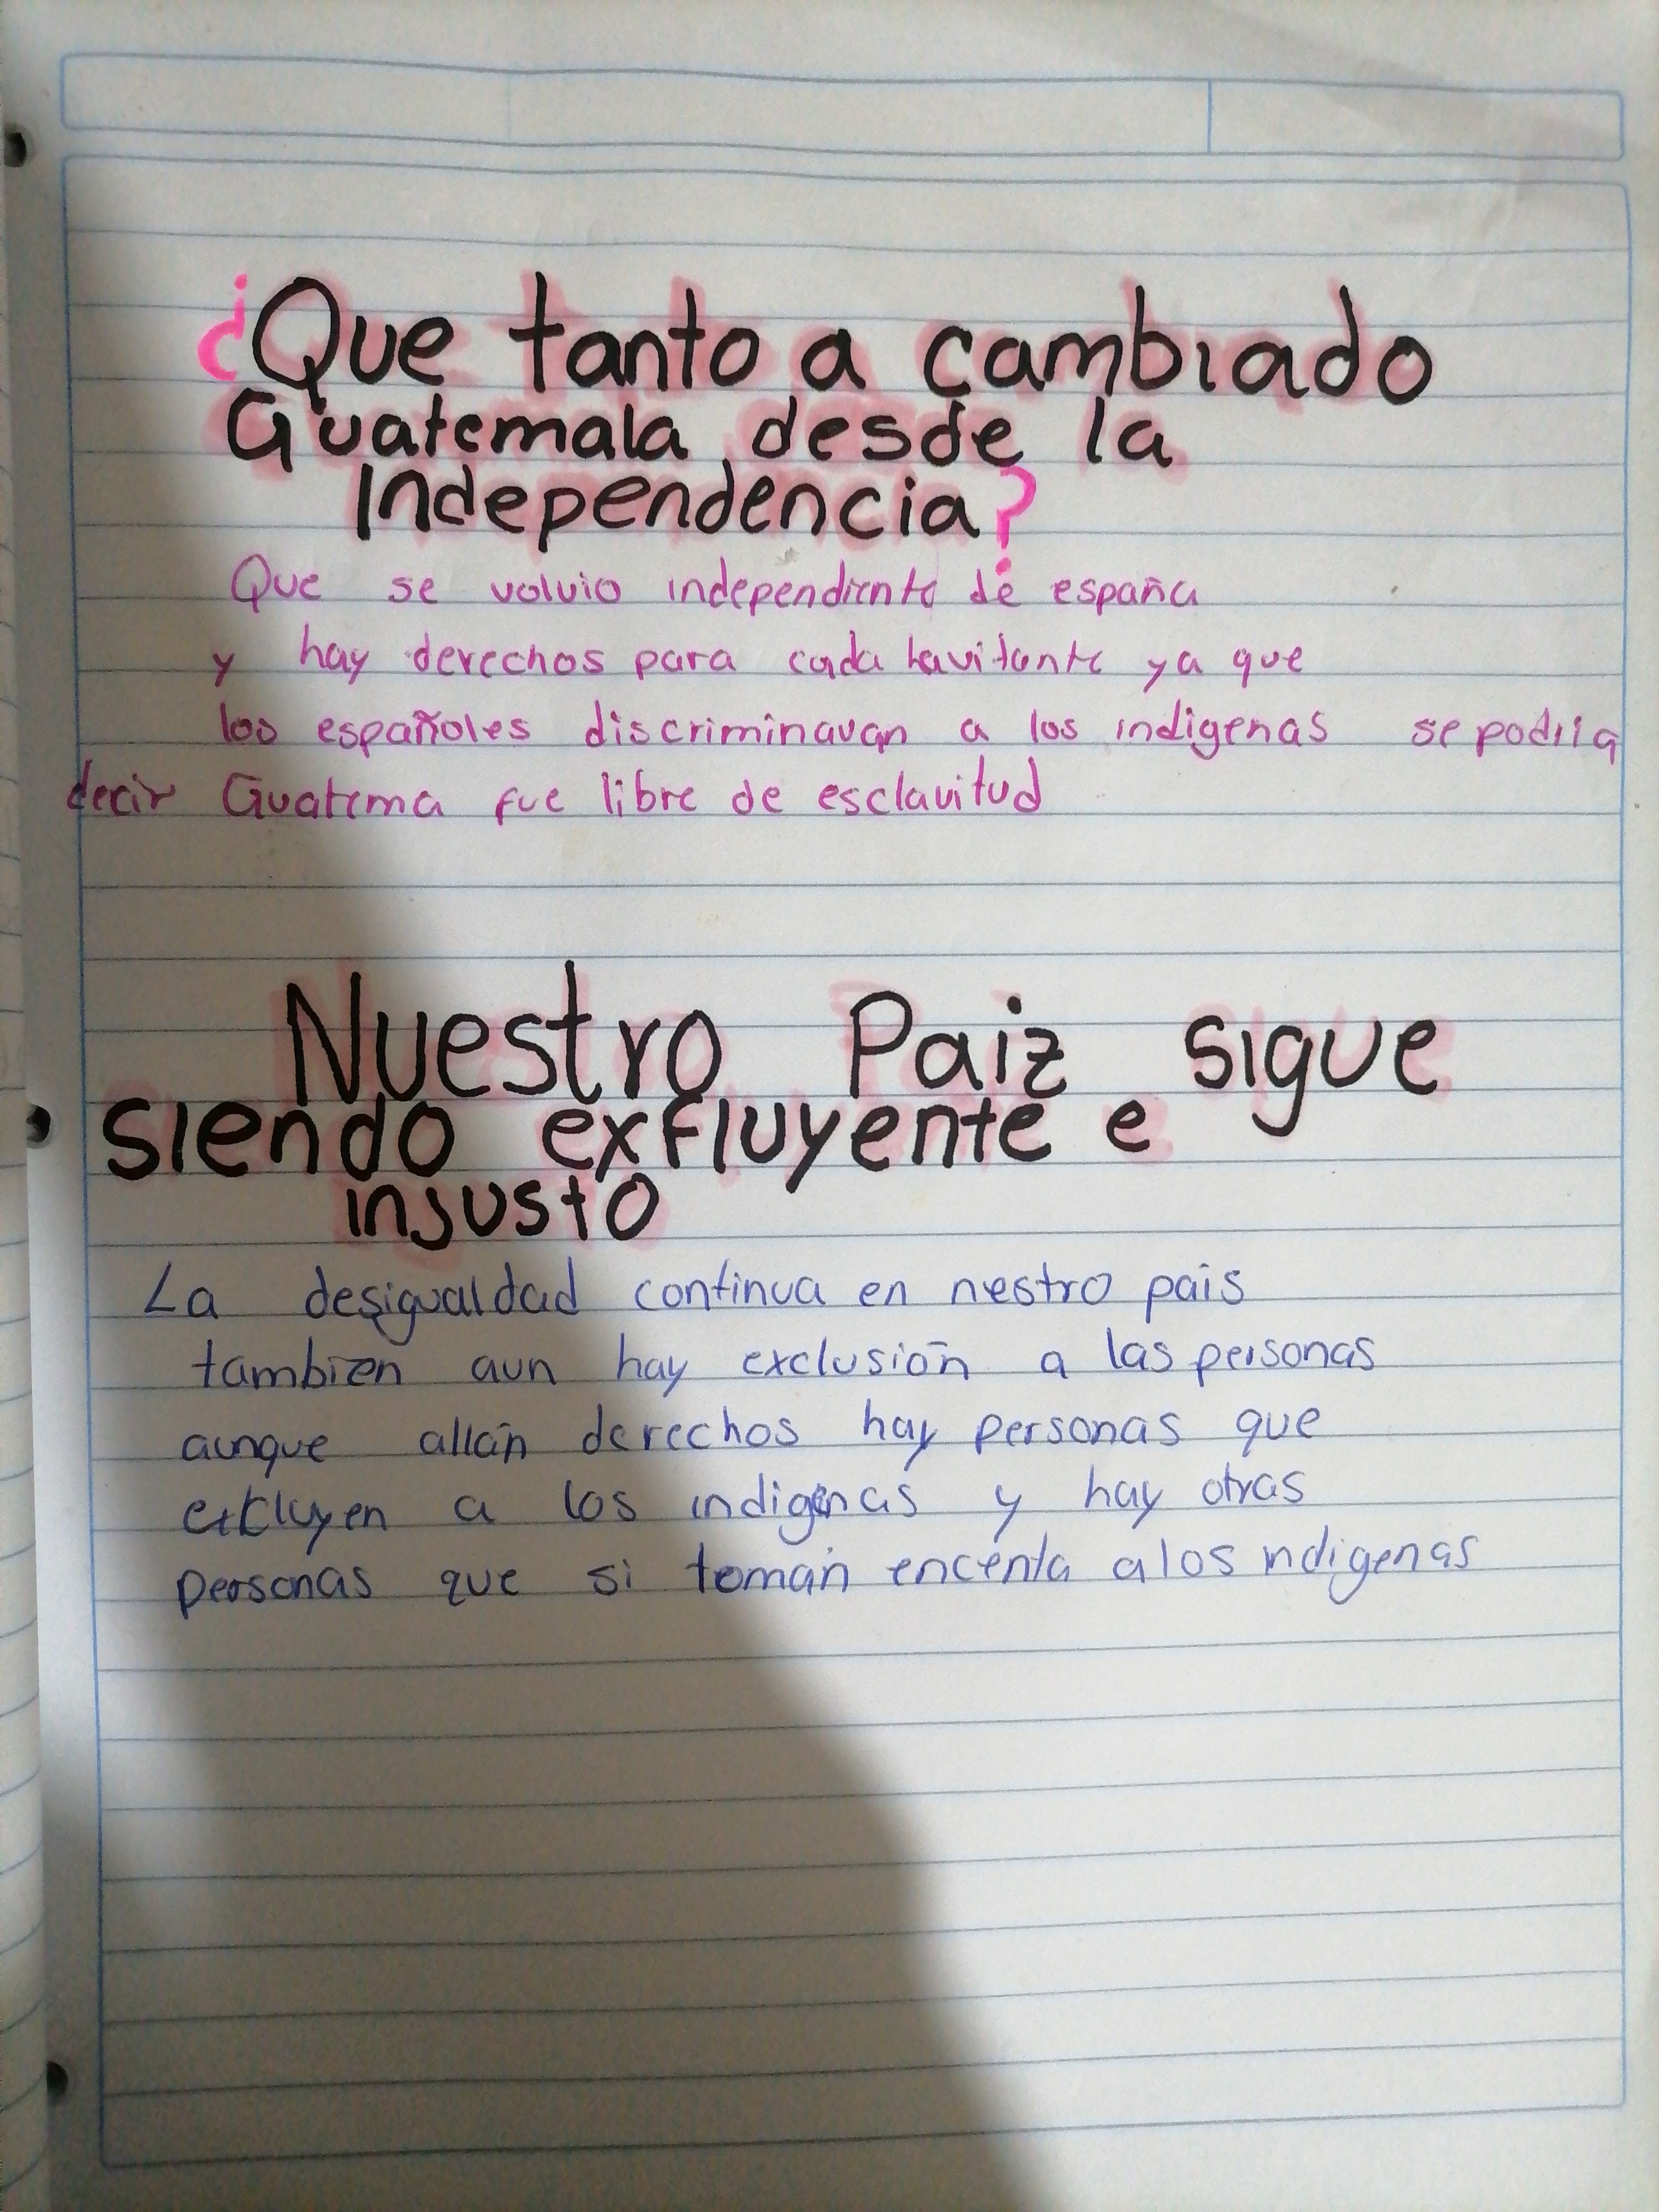 ¿Que tanto a cambiado
Guatemala desde la
Independencia?
Que se volvio independiente de españa
y hay derechos para cada havitante ya que
los españoles discriminavan a los indigenas se podria
decir Guatema fue libre de esclavitud
Nuestro Paiz sigue
siendo exfluyente e
injusto
La desigualdad continua en nestro pais
tambien aun hay exclusión a las personas
aunque allan derechos hay personas que
excluyen a los indigenas y hay otras
personas que si toman encenta alos ndigenas